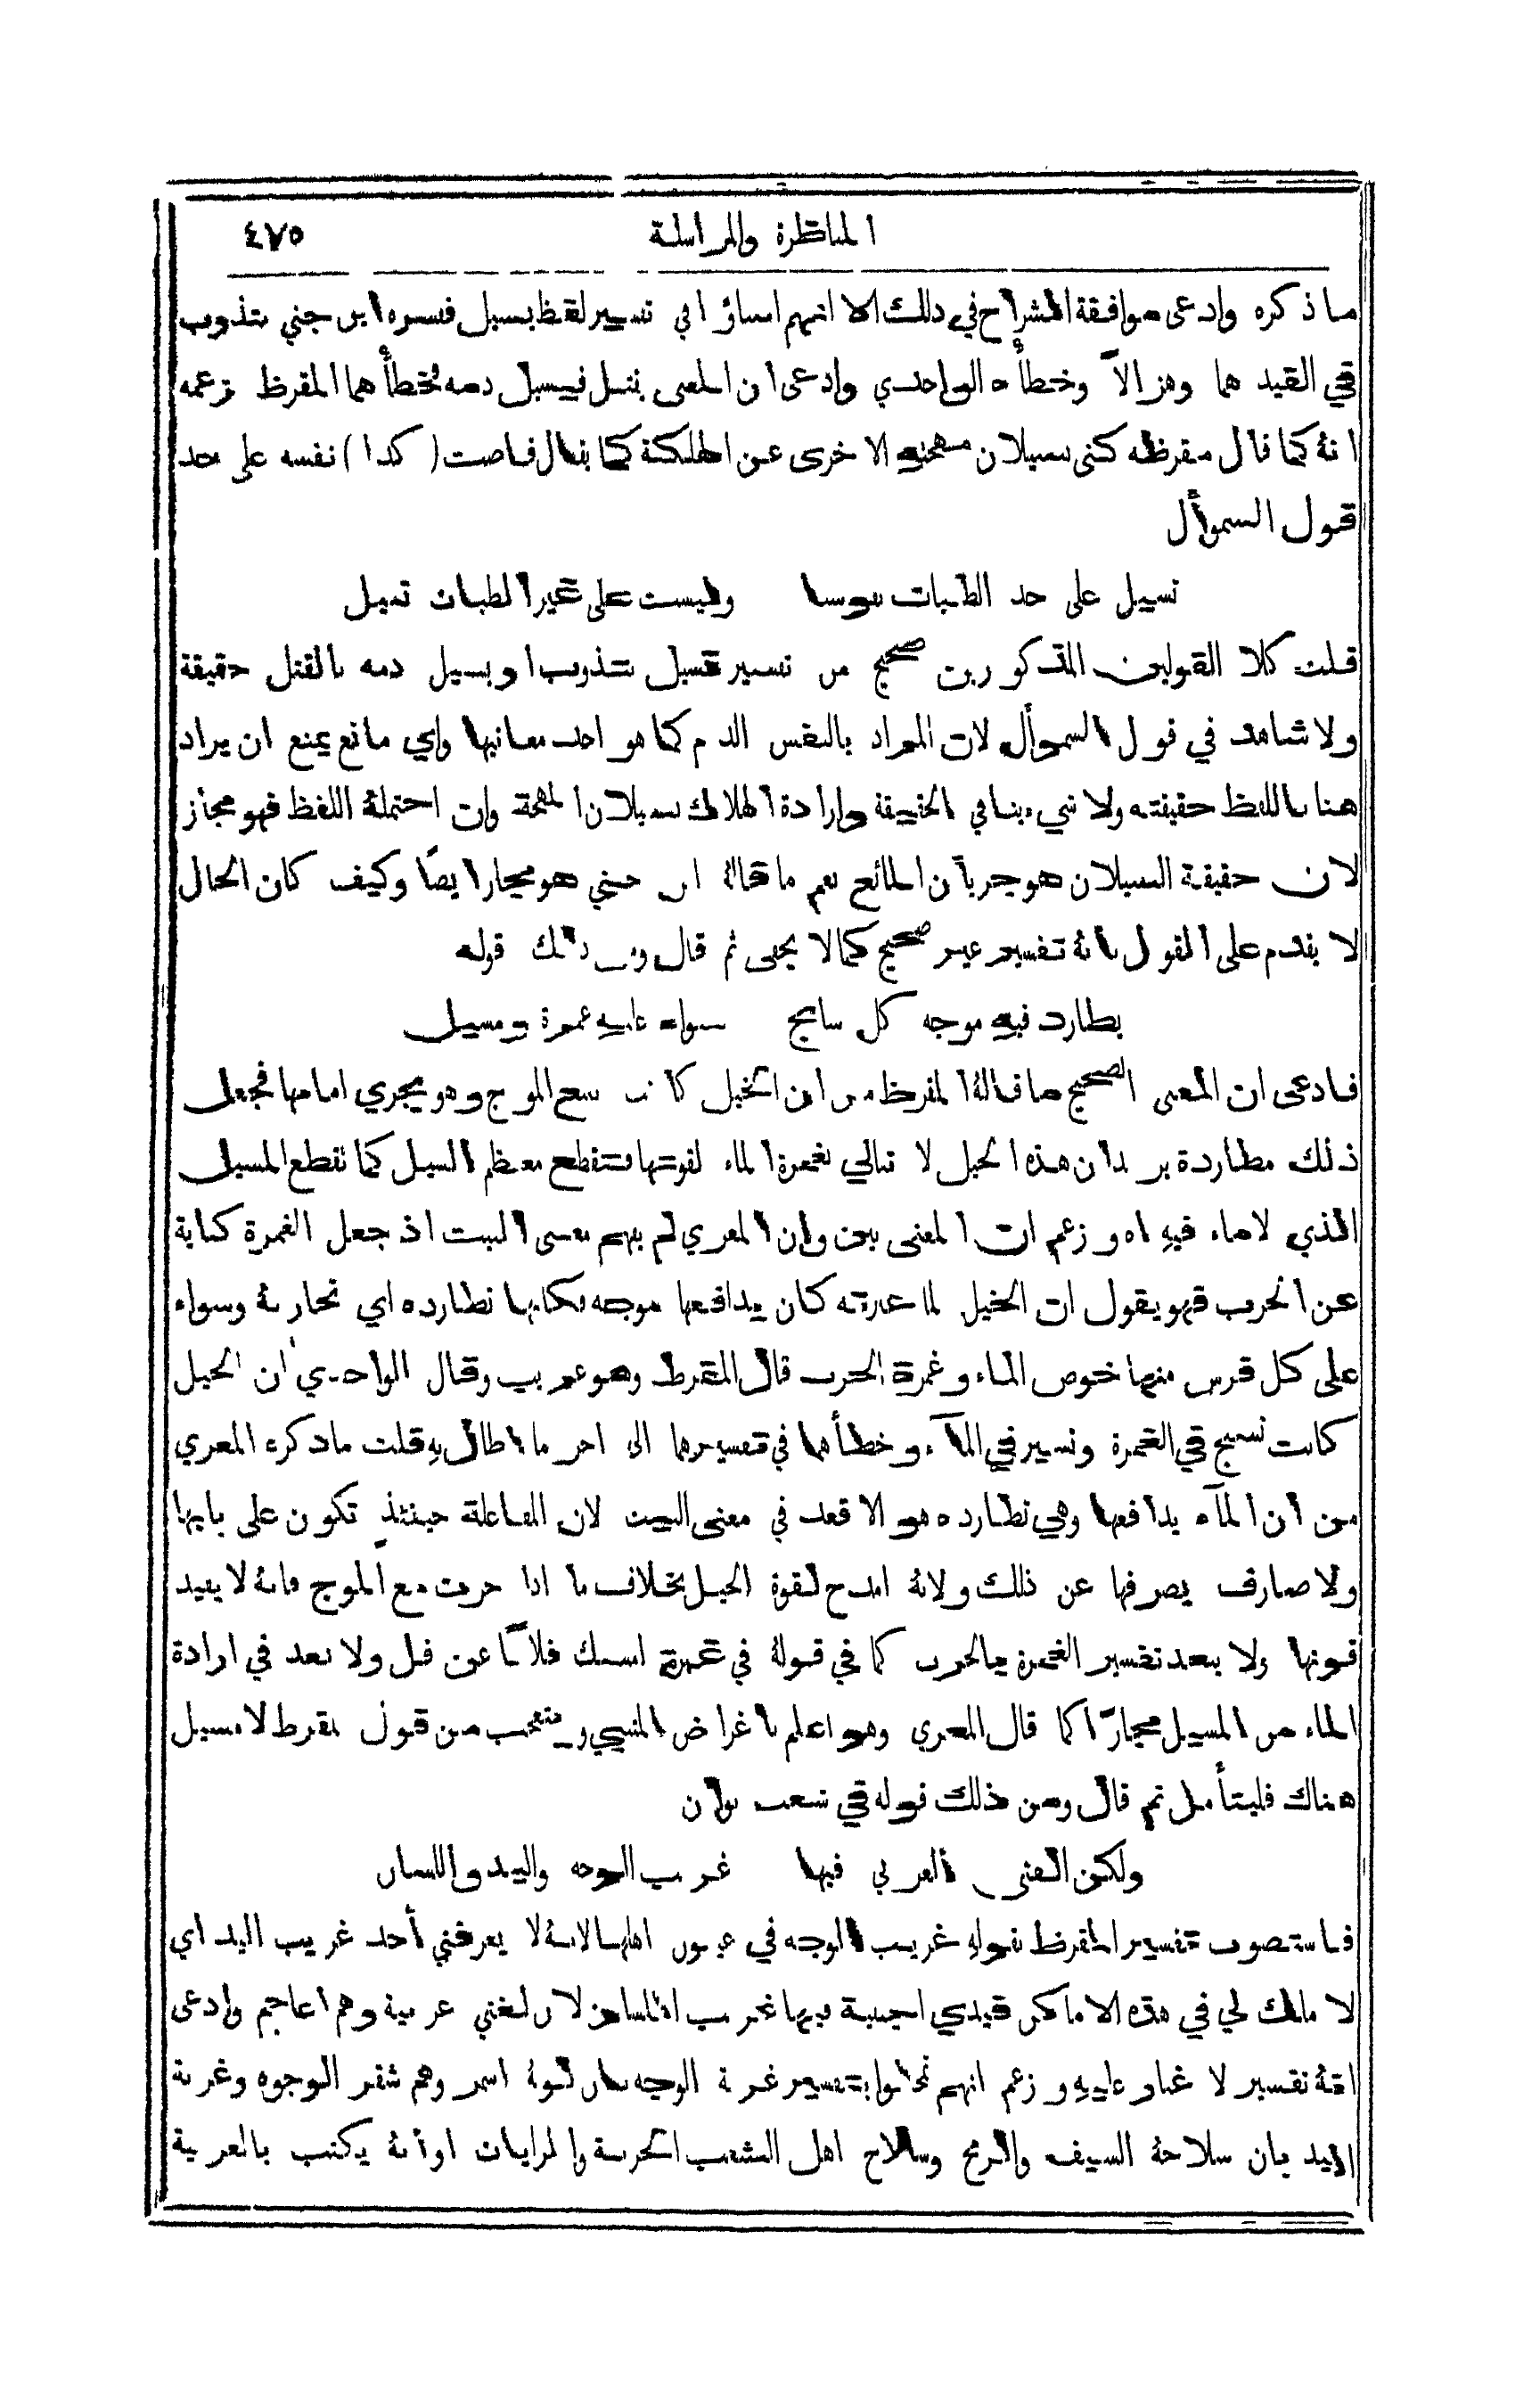 المناظرة والمراسلة ٤٧٥
ما ذكره وادعى موافقة الشراح في ذلك الا انهم اساؤا في تفسير لفظ يسيل ففسره ابن جني بتذوب
في القيد هما وهزالاً وخطأه الواحدي وادعى ان المعنى يقتل فيسيل دمه فخطأهما المقرظ بزعمه
انهُ كما قال مقرظه كنى بسيلان مهجته الاخرى عن الهلكة كما يقال فاصت (كذا) نفسه على حد
قول السموأل
تسيل على حد الظبات نفوسنا وليست على غير الظبات تسيل
قلت كلا القولين المذكورين صحيح من تفسير تسيل بتذوب او يسيل دمه بالقتل حقيقة
ولا شاهد في قول السموأل لان المراد بالنفس الدم كما هو احد معانيها واي مانع يمنع ان يراد
هنا باللفظ حقيقته ولا شيء ينافي الحقيقة وارادة الهلاك بسيلان المهجة وان احتملهُ اللفظ فهو مجاز
لان حقيقة السيلان هو جريان المائع نعم ما قالهُ ابن جني هو مجاز ايضًا وكيف كان الحال
لا يقدم على القول بانهُ تفسير غير صحيح كما لا يخفى ثم قال ومن ذلك قوله
يطارد فيه موجه كل سابح سواء عليه غمرة ومسيل
فادعى ان المعنى الصحيح ما قالهُ المقرظ من ان الخيل كانت تتبع الموج وهو يجري امامها فجعل
ذلك مطاردة يريد ان هذه الخيل لا تبالي بغمرة الماء لقوتها فتقطع معظم السيل كما تقطع المسيل
الذي لا ماء فيهِ اه وزعم ان المعنى بين وان المعري لم يفهم معنى البيت اذ جعل الغمرة كناية
عن الحرب فهو يقول ان الخيل لما عبرته كان يدافعها موجه فكانها تطارده اي تحاربهُ وسواء
على كل فرس منها خوض الماء وغمرة الحرب قال المقرظ وهو غريب وقال الواحدي ان الخيل
كانت تسبح في الغمرة وتسير في الماء وخطأهما في تفسيرهما الى اخر ما اطال بهِ قلت ما ذكره المعري
من ان الماء يدافعها وهي تطارده هو الاقعد في معنى البيت لان المفاعلة حينئذٍ تكون على بابها
ولا صارف يصرفها عن ذلك ولانهُ امدح لقوة الخيل بخلاف ما اذا جرت مع الموج فانهُ لا يفيد
قوتها ولا يبعد تفسير الغمرة بالحرب كما في قولهُ في غمرة امسك فلانًا عن فل ولا بعد في ارادة
الماء من المسيل مجازًا كما قال المعري وهو اعلم باغراض المتنبي و تعجب من قول المقرظ لا مسيل
هناك فليتأمل ثم قال ومن ذلك قوله في شعب بوان
ولكن الفتى العربي فيها غريب الوجه واليد واللسان
فاستصوب تفسير المقرظ بقولهِ غريب الوجه في عيون اهلها لانهُ لا يعرفني أحد غريب اليد اي
لا ملك لي في هذه الاماكن فيدي اجنبية فيها غريب اللسان لان لغتي عربية وهم اعاجم وادعى
انهُ تفسير لا غبار عليهِ وزعم انهم تمحلوا بتفسير غربة الوجه بان لونهُ اسمر وهم شقر الوجوه وغربة
اليد بان سلاحهُ السيف والرمح وسلاح اهل الشعب الحربة والمرايات او انهُ يكتب بالعربية